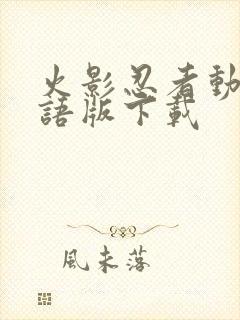 火影忍者動
語版下載
風未落